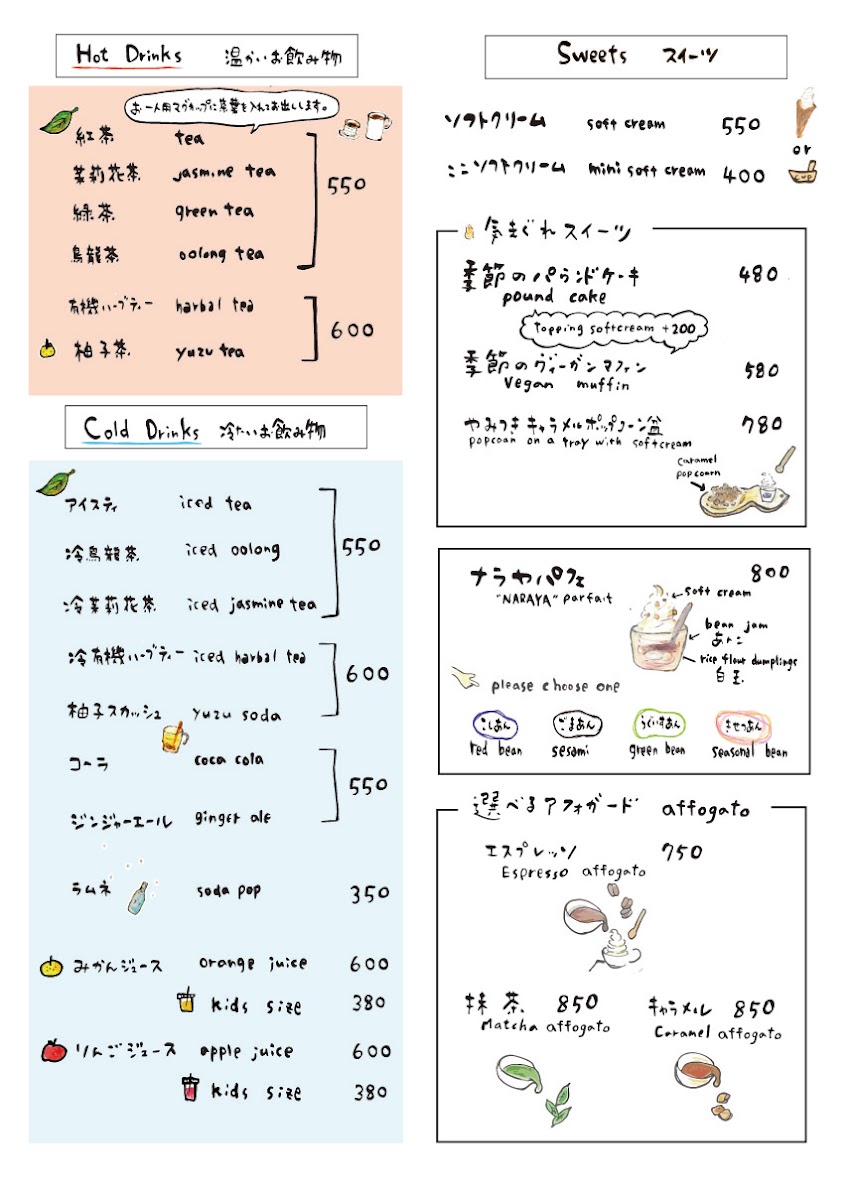 Hot Drinks 温かいお飲み物
お一人用マグカップに茶葉を入れてお出しします。
紅茶 tea
茉莉花茶 jasmine tea
550
緑茶 green tea
烏龍茶 oolong tea
有機ハーブティー harbal tea
600
柚子茶 yuzu tea
Cold Drinks 冷たいお飲み物
アイスティ iced tea
冷烏龍茶 iced oolong
550
冷茉莉花茶 iced jasmine tea
冷有機ハーブティー iced harbal tea
600
柚子スカッシュ yuzu soda
コーラ coca cola
550
ジンジャーエール ginger ale
ラムネ soda pop 350
みかんジュース orange juice 600
kids size 380
りんごジュース apple juice 600
kids size 380
Sweets スイーツ
ソフトクリーム soft cream 550
or
ミニソフトクリーム mini soft cream 400
CUP
気まぐれスイーツ
季節のパウンドケーキ 480
pound cake
topping softcream +200
季節のヴィーガンマフィン 580
Vegan muffin
やみつきキャラメルポップコーン盆 780
popcoan on a tray with softcream
caramel
popcoarn
ナラヤパフェ 800
"NARAYA" parfait
soft cream
bean jam
あんこ
rice flour dumplings
白玉
please choose one
こしあん ごまあん うぐいすあん きせつあん
red bean sesami green bean seasonal bean
選べるアフォガード affogato
エスプレッソ 750
Espresso affogato
抹茶 850 キャラメル 850
Matcha affogato Caramel affogato